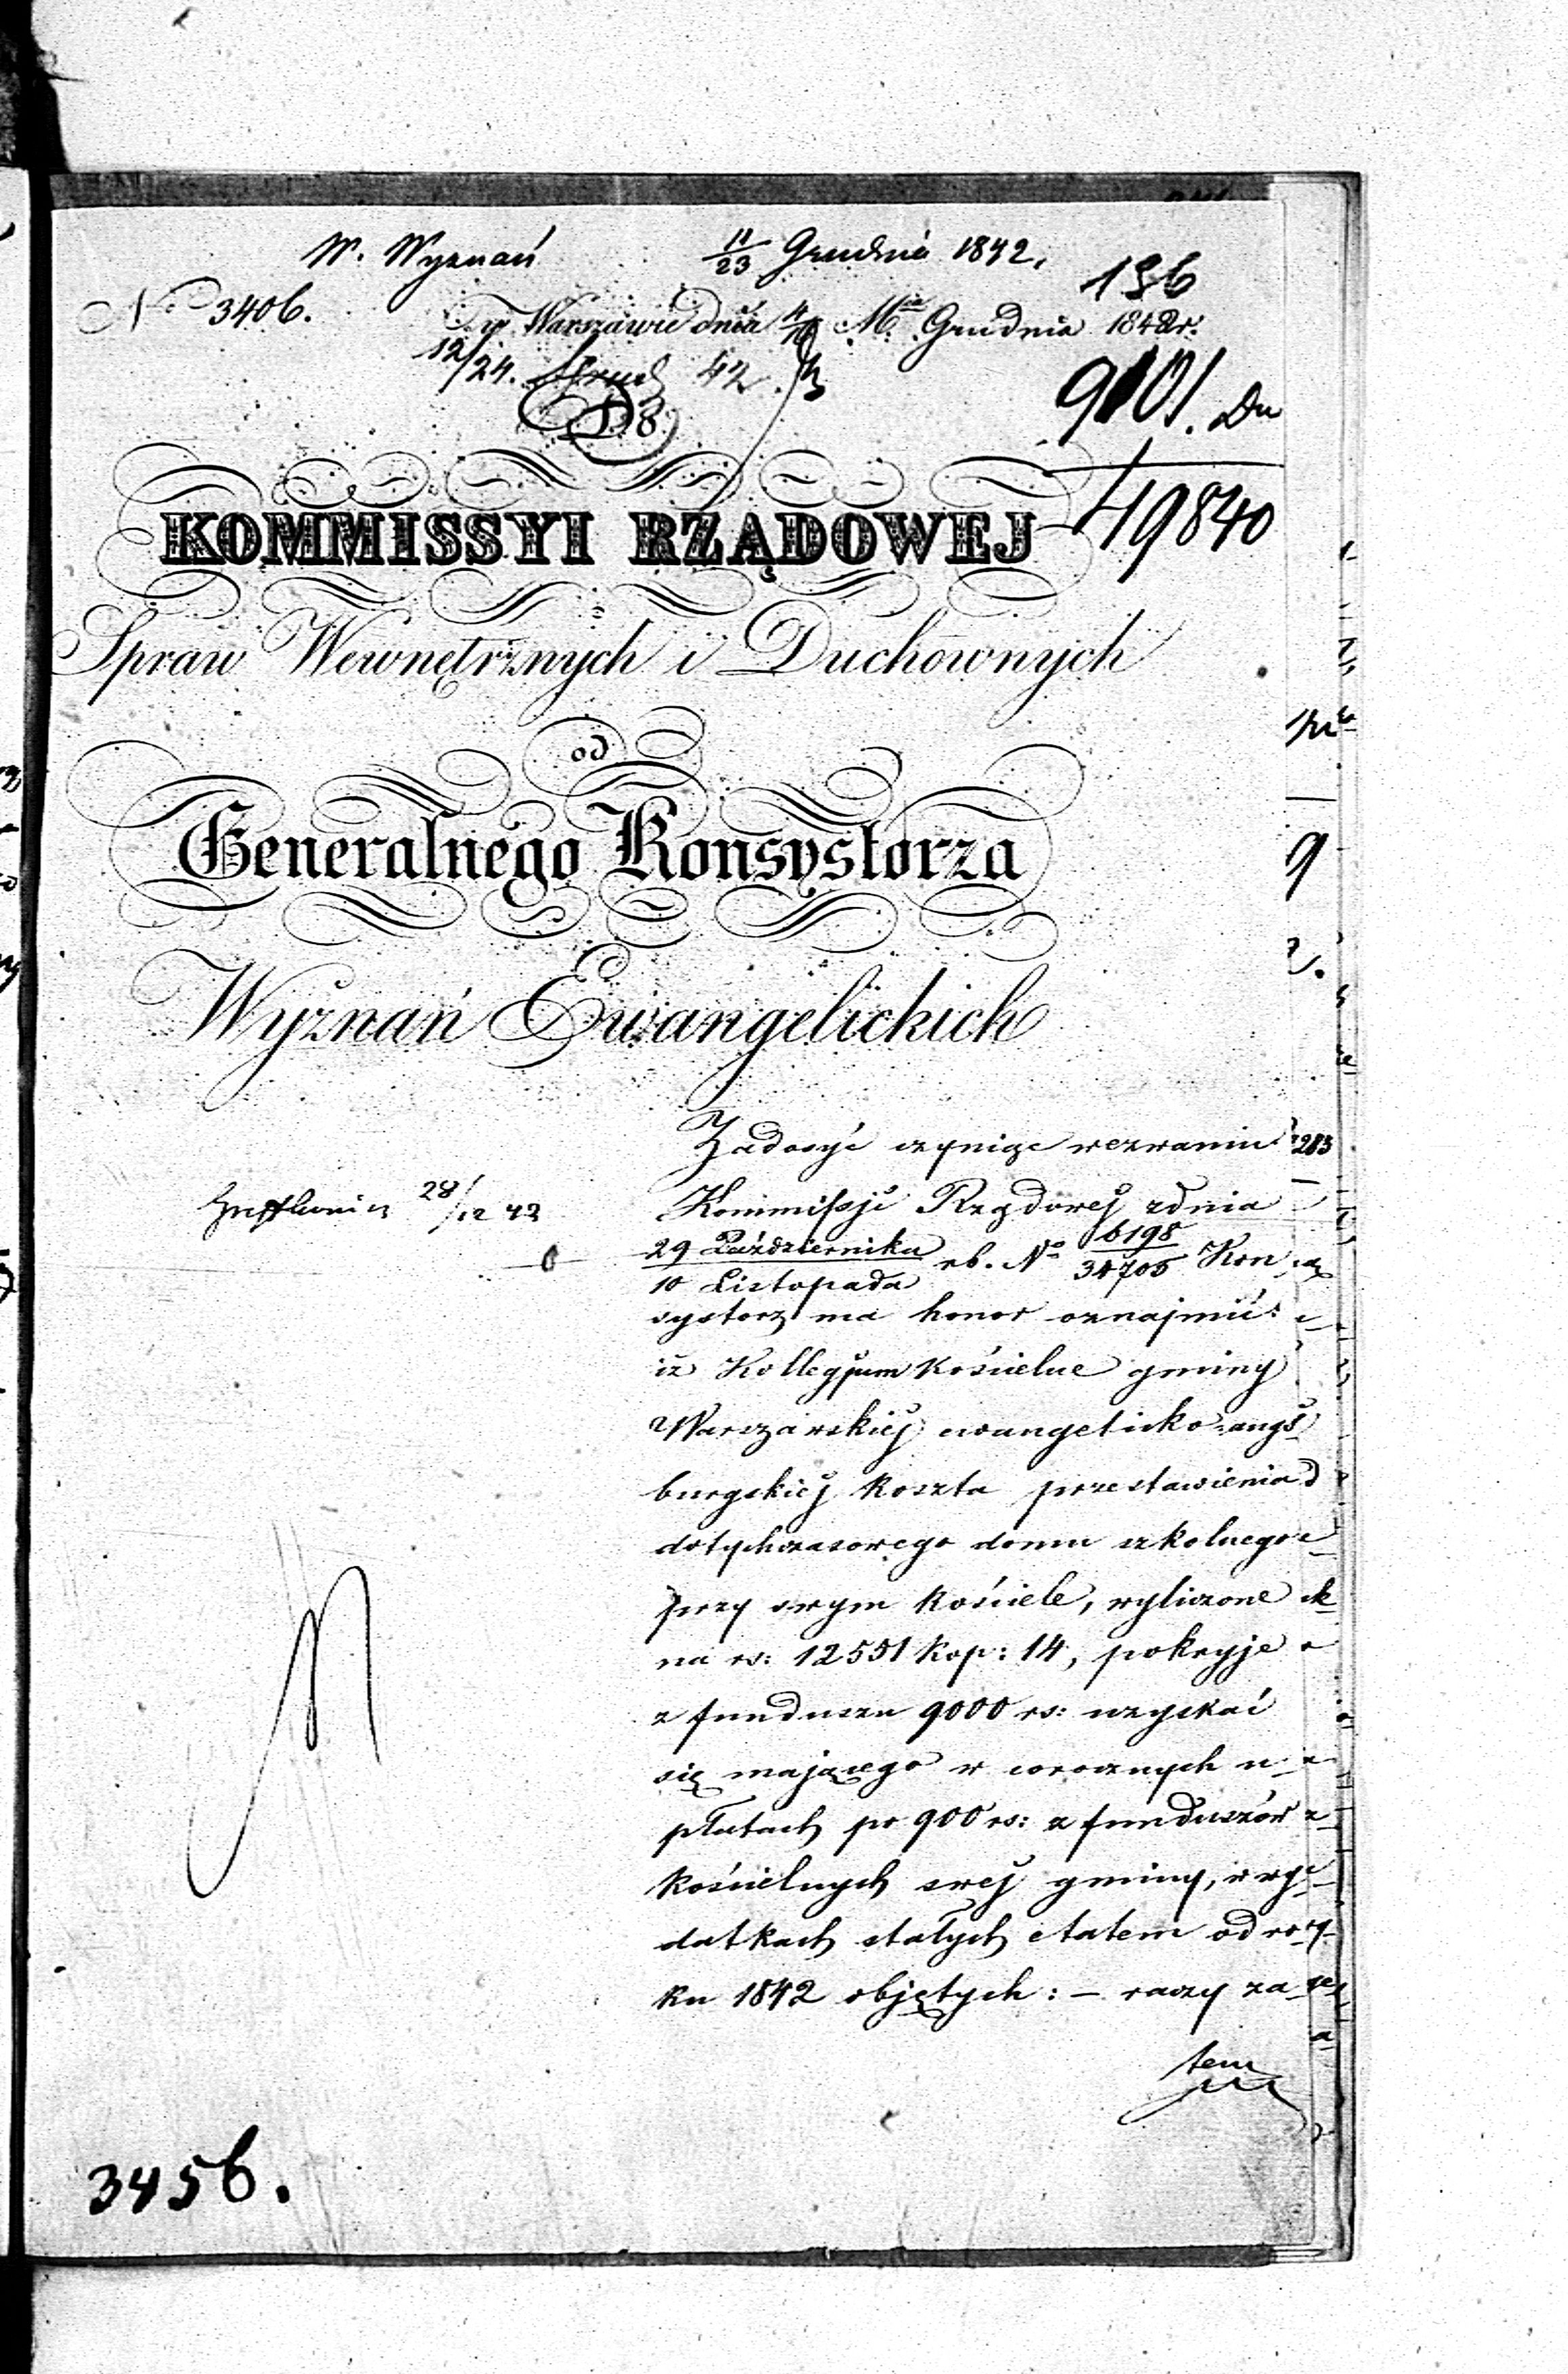 W. Wyznań 11/23 Grudnia 1842.
136
No 3406. w Warszawie dnia 4/16 Mca Grudnia 1842r.
12/24. 42
9101. Du
49840
KOMMISSYI RZĄDOWEJ
Spraw Wewnętrznych i Duchownych
od
Generalnego Konsystorza
Wyznań Ewangelickich
Zadosyć czyniąc wezwaniu
28/12 42
Kommissji Rządowej z dnia
29 Października / 10 Listopada rb. No 6198/34705 Kon
systorz ma honor oznajmić:
iż Kollegjum Kościelne gminy
Warszawskiej ewangelicko-augs
burgskiej koszta przestawienia
dotychczasowego domu szkolnego
przy swym kościele, wyliczone
na rs: 12551 kop: 14, pokryje
z funduszu 9000 rs: uzyskać
się mającego w corocznych u
płatach po 900 rs: z funduszów
kościelnych swej gminy, w wy
datkach stałych etatem od ro
ku 1842 objętych: – raczy za
tem
3456.